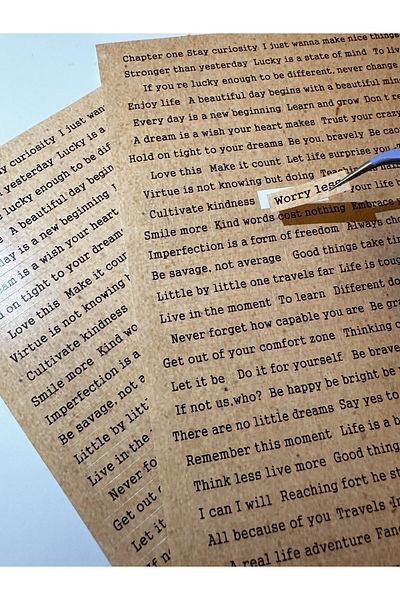 Chapter one Stay curiosity I just wanna make nice things
Stronger than yesterday Lucky is a state of mind To live
If you re lucky enough to be different, never change
Enjoy life A beautiful day begins with a beautiful mind
Every day is a new beginning Learn and grow Don t re
A dream is a wish your heart makes Trust your crazy
Hold on tight to your dreams Be you, bravely Be cao
Love this Make it count Let life surprise you
Virtue is not knowing but doing
Cultivate kindness Worry less your life b
Smile more Kind words cost nothing Embrace
Imperfection is a form of freedom Always cho
Be savage, not average Good things take tim
Little by little one travels far Life is toug
Live in the moment To learn Different do
Never forget how capable you are Be gra
Get out of your comfort zone Thinking o
Let it be Do it for yourself Be brave
If not us,who? Be happy be bright be
There are no little dreams Say yes to
Remember this moment Life is a b
Think less live more Good thing
I can I will Reaching fort he st
All because of you Travels in
A real life adventure Fan
y curiosity I just wan
yesterday Lucky is a
lucky enough to be dif
A beautiful day begin
day is a new beginning
m is a wish your heart
d on tight to your dream
Love this Make it coun
Virtue is not knowing
Cultivate kindness
Smile more Kind wo
Imperfection is a
Be savage, not a
Little by litt
Live in the
Never fo
Get out
Let it
If n